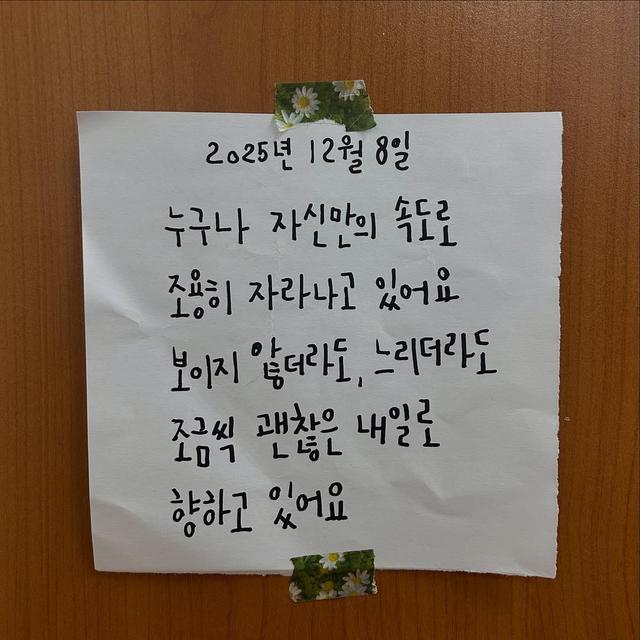 2025년 12월 8일
누구나 자신만의 속도로
조용히 자라나고 있어요
보이지 않더라도, 느리더라도
조금씩 괜찮은 내일로
향하고 있어요